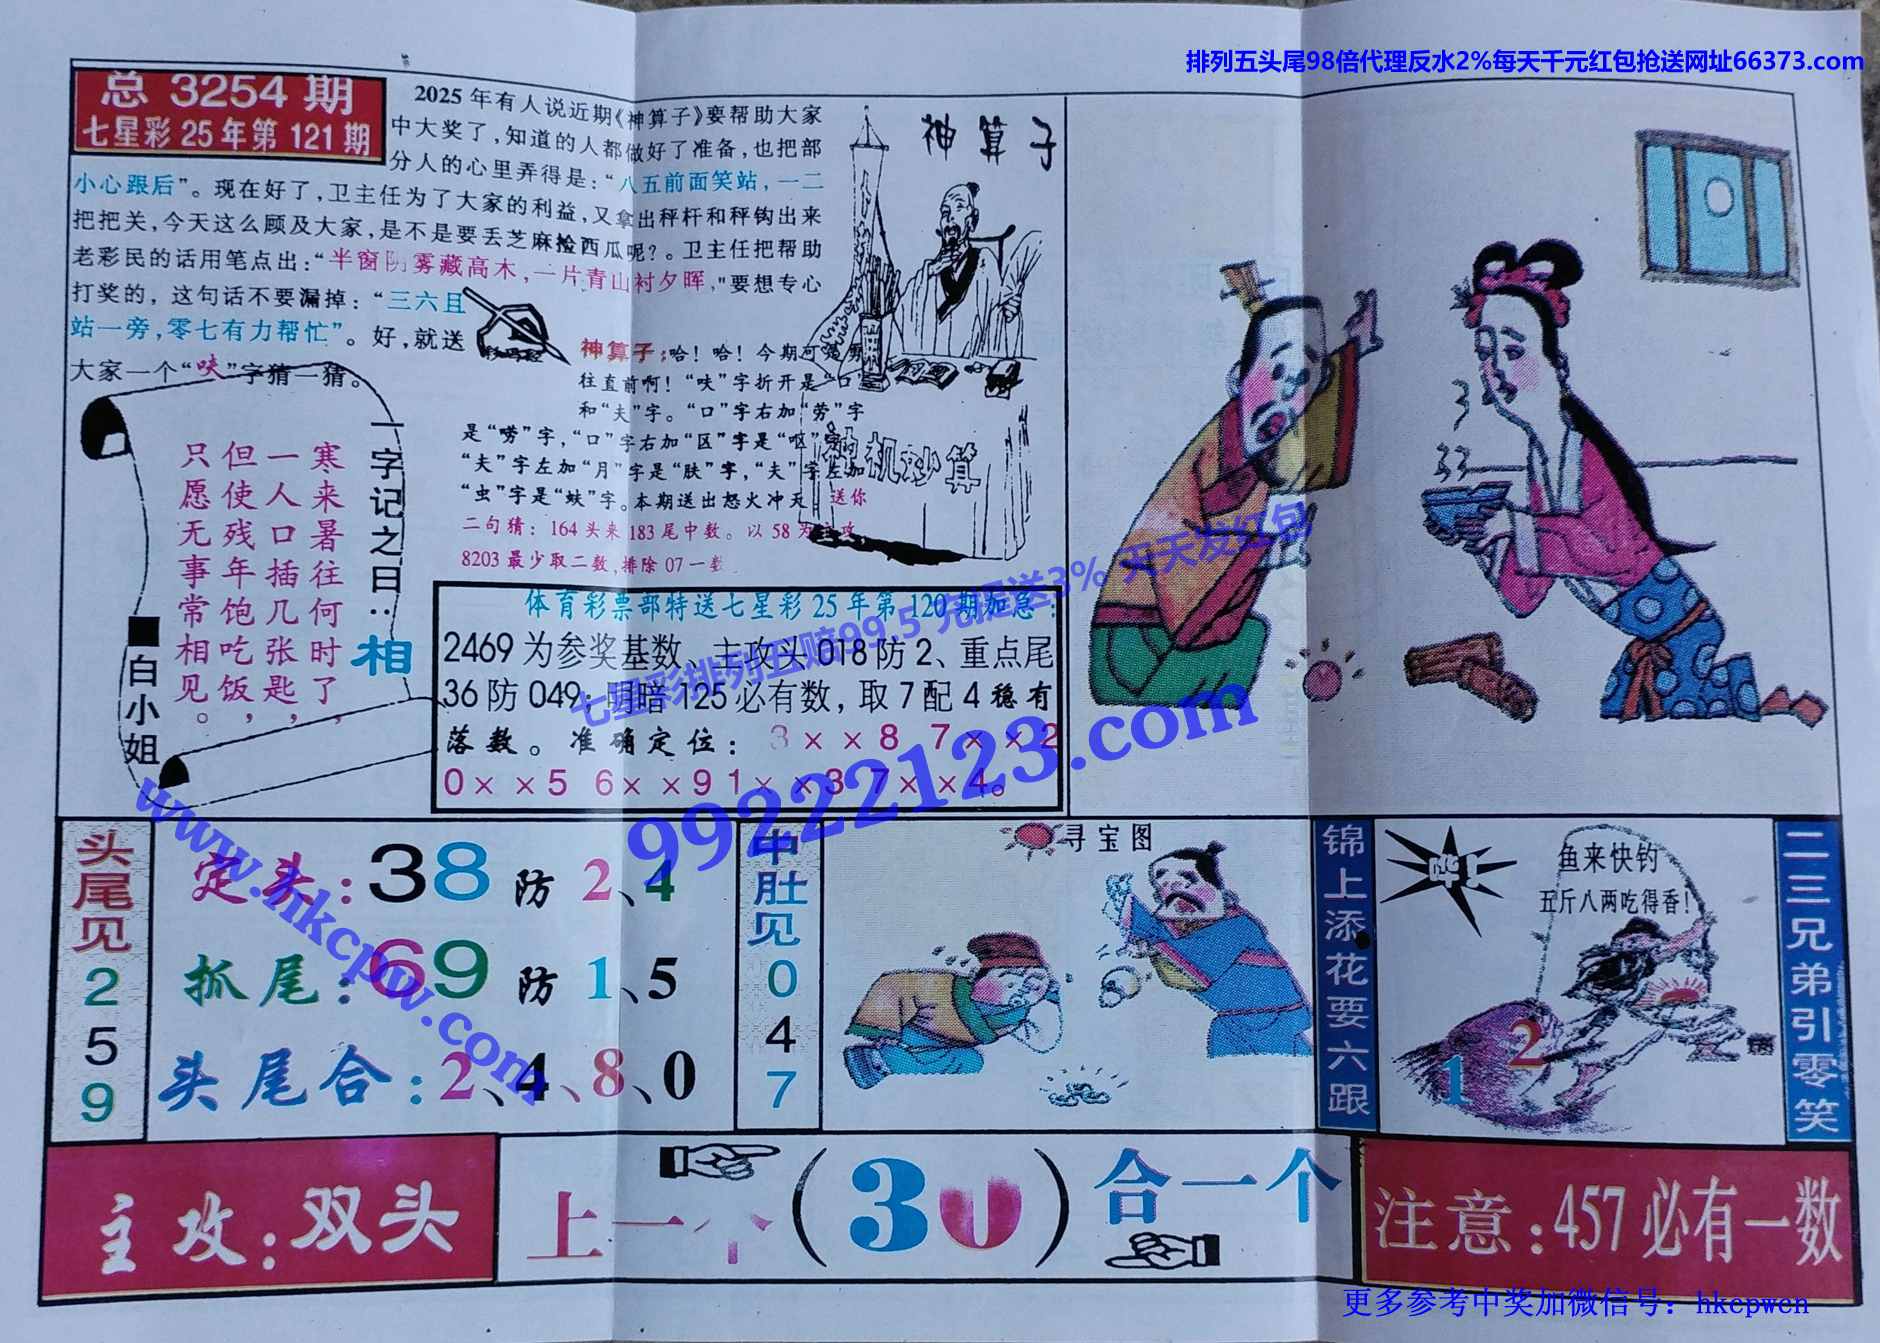 排列五头尾98倍代理反水2%每天千元红包抢送网址66373.com
总 3254 期
七星彩 25 年第 121 期
2025 年有人说近期《神算子》要帮助大家
中大奖了，知道的人都做好了准备，也把部
分人的心里弄得是：“八五前面笑站，一二
小心跟后”。现在好了，卫主任为了大家的利益，又拿出秤杆和秤钩出来
把把关，今天这么顾及大家，是不是要丢芝麻捡西瓜呢？。卫主任把帮助
老彩民的话用笔点出：“半窗阴雾藏高木，一片青山衬夕晖，"要想专心
打奖的，这句话不要漏掉：“三六且
站一旁，零七有力帮忙”。好，就送
大家一个“呋”字猜一猜。
神算子
神算子：哈！哈！今期可是勇
往直前啊！“呋”字折开是“口”
和“夫”字。“口”字右加“劳”字
是“唠”字，“口”字右加“区”字是“呕”字
“夫”字左加“月”字是“肤”字，“夫”字左加
“虫”字是“蚨”字。本期送出怒火冲天 送你
二句猜：164 头来 183 尾中数。以 58 为主攻
8203 最少取二数，排除 07 一数
神机妙算
一字记之曰：相
寒来暑往何时了，
一人口插几张匙，
但使残年饱吃饭，
只愿无事常相见。
■白小姐
体育彩票部特送七星彩 25 年第 120 期加急：
2469 为参奖基数、主攻头 018 防 2、重点尾
36 防 049；明暗 125 必有数，取 7 配 4 稳有
落数。准确定位：3××8 7××2
0××5 6××9 1××3 7××4。
七星彩排列五赔99.5 充提送3% 天天发红包
99222123.com
www.hkcpw.com
头尾见259
定头：38 防 2、4
抓尾：69 防 1、5
头尾合：2、4、8、0
中肚见047
寻宝图
锦上添花要六跟
鱼来快钓
五斤八两吃得香！
1 2
二三兄弟引零笑
主攻：双头
上一个（30）合一个
注意：457必有一数
更多参考中奖加微信号：hkcpwcn